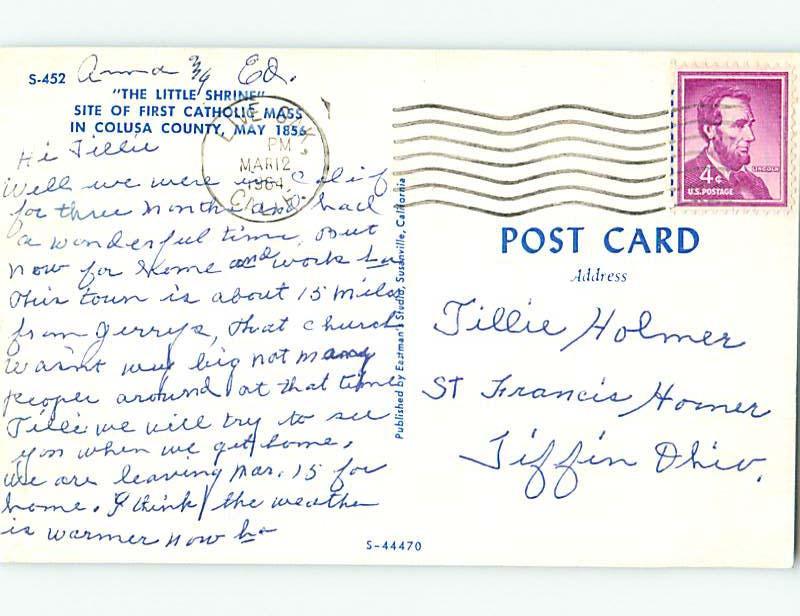 Anna & Ed.
S-452
"THE LITTLE SHRINE"
SITE OF FIRST CATHOLIC MASS
IN COLUSA COUNTY, MAY 1856
LIVE OAK,
PM
MAR 12
1964
CALIF.
4¢
LINCOLN
U.S. POSTAGE
Hi Tillie
Well we were in Calif
for three months and had
a wonderful time, But
now for home and work ha
This town is about 15 miles
from Jerrys, that church
wasnt very big not many
people around at that time
Tillie we will try to see
you when we get home,
We are leaving Mar. 15 for
home. I think the weather
is warmer now ha
Published by Eastman's Studio, Susanville, California
POST CARD
Address
Tillie Holmer
St Francis Homer
Tiffin Ohio.
S-44470